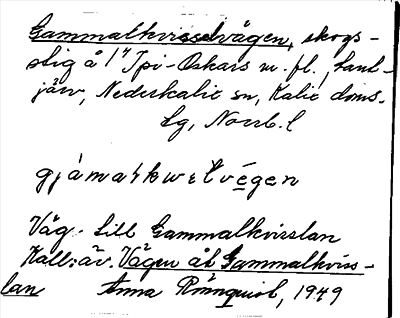 Gammalkvisselvägen, skogs-
stig å 1⁴ Ipi-Oskars m. fl.,
järv, Nederkalix sn, Kalix doms.
lg, Norrb. l
gjámatkwɛtvégen
Väg. till Gammalkvisslan
Kall: äv. Vägen åt Gammalkviss-
lan Anna Rönnquist, 1949